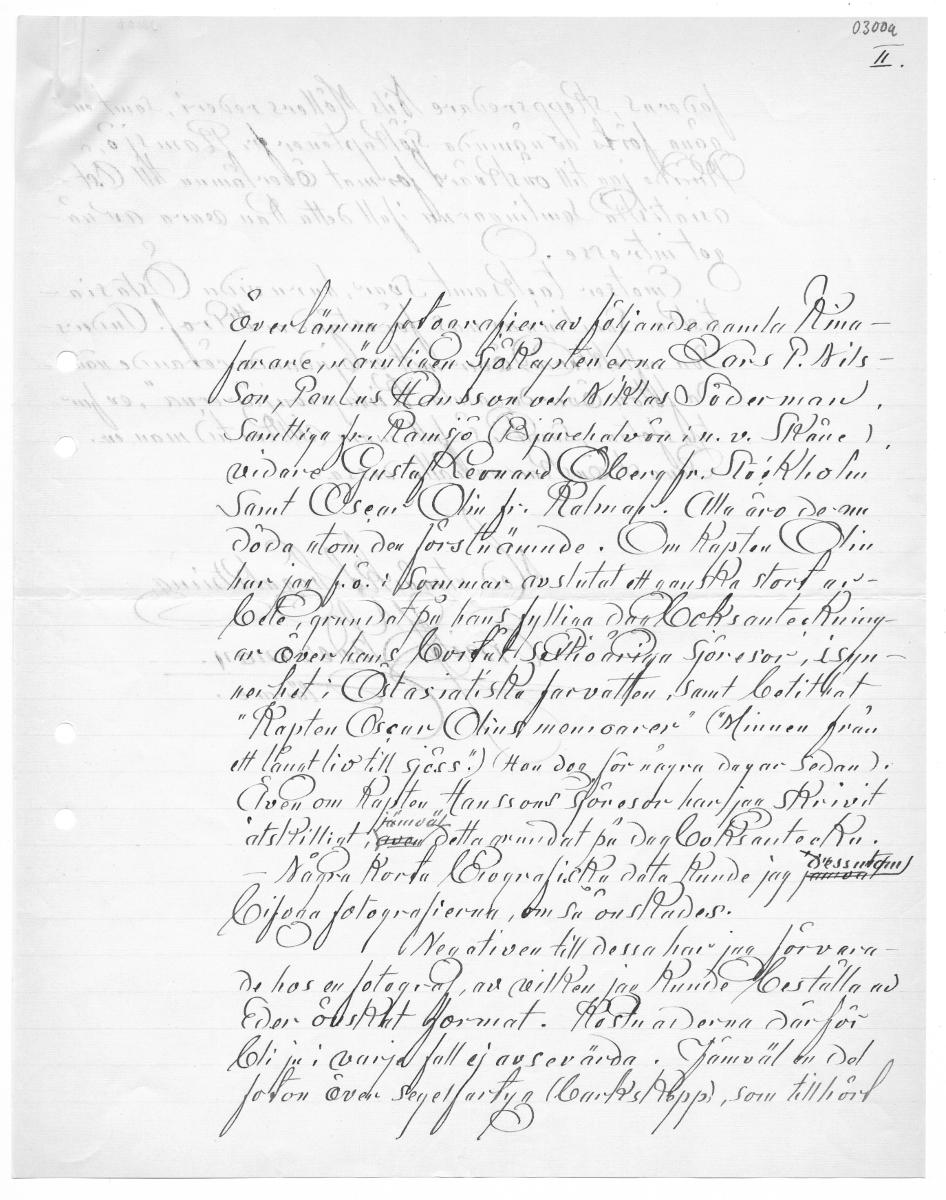 0300a
II.
Överlämna fotografier av följande gamla Kina-
farare, nämligen sjökaptenerna Lars P. Nils-
son, Paulus Hansson och Niklas Söderman,
samtliga fr. Ramsjö (Bjärehalvön i n. v. Skåne),
vidare Gustaf Leonard Öberg fr. Stockholm
samt Oscar Olin fr. Kalmar. Alla äro de nu
döda utom den förstnämnde. Om kapten Olin
har jag f. ö. i sommar avslutat ett ganska stort ar-
bete, grundat på hans fylliga dagboksanteckning-
ar över hans bortåt sextioåriga sjöresor, i syn-
nerhet i Östasiatiska farvatten, samt betitlat
"Kapten Oscar Olins memoarer" ("Minnen från
ett långt liv till sjöss".) (Han dog för några dagar sedan).
Även om kapten Hanssons sjöresor har jag skrivit
åtskilligt, jämväl detta grundat på dagboksanteckn.
– Några korta biografiska data kunde jag dessutom
bifoga fotografierna, om så önskades.
Negativen till dessa har jag förvara-
de hos en fotograf, av vilken jag kunde beställa av
Eder önskat format. Kostnaderna därför
bli ju i varje fall ej avsevärda. Jämväl en del
foton över segelfartyg (barkskepp), som tillhört